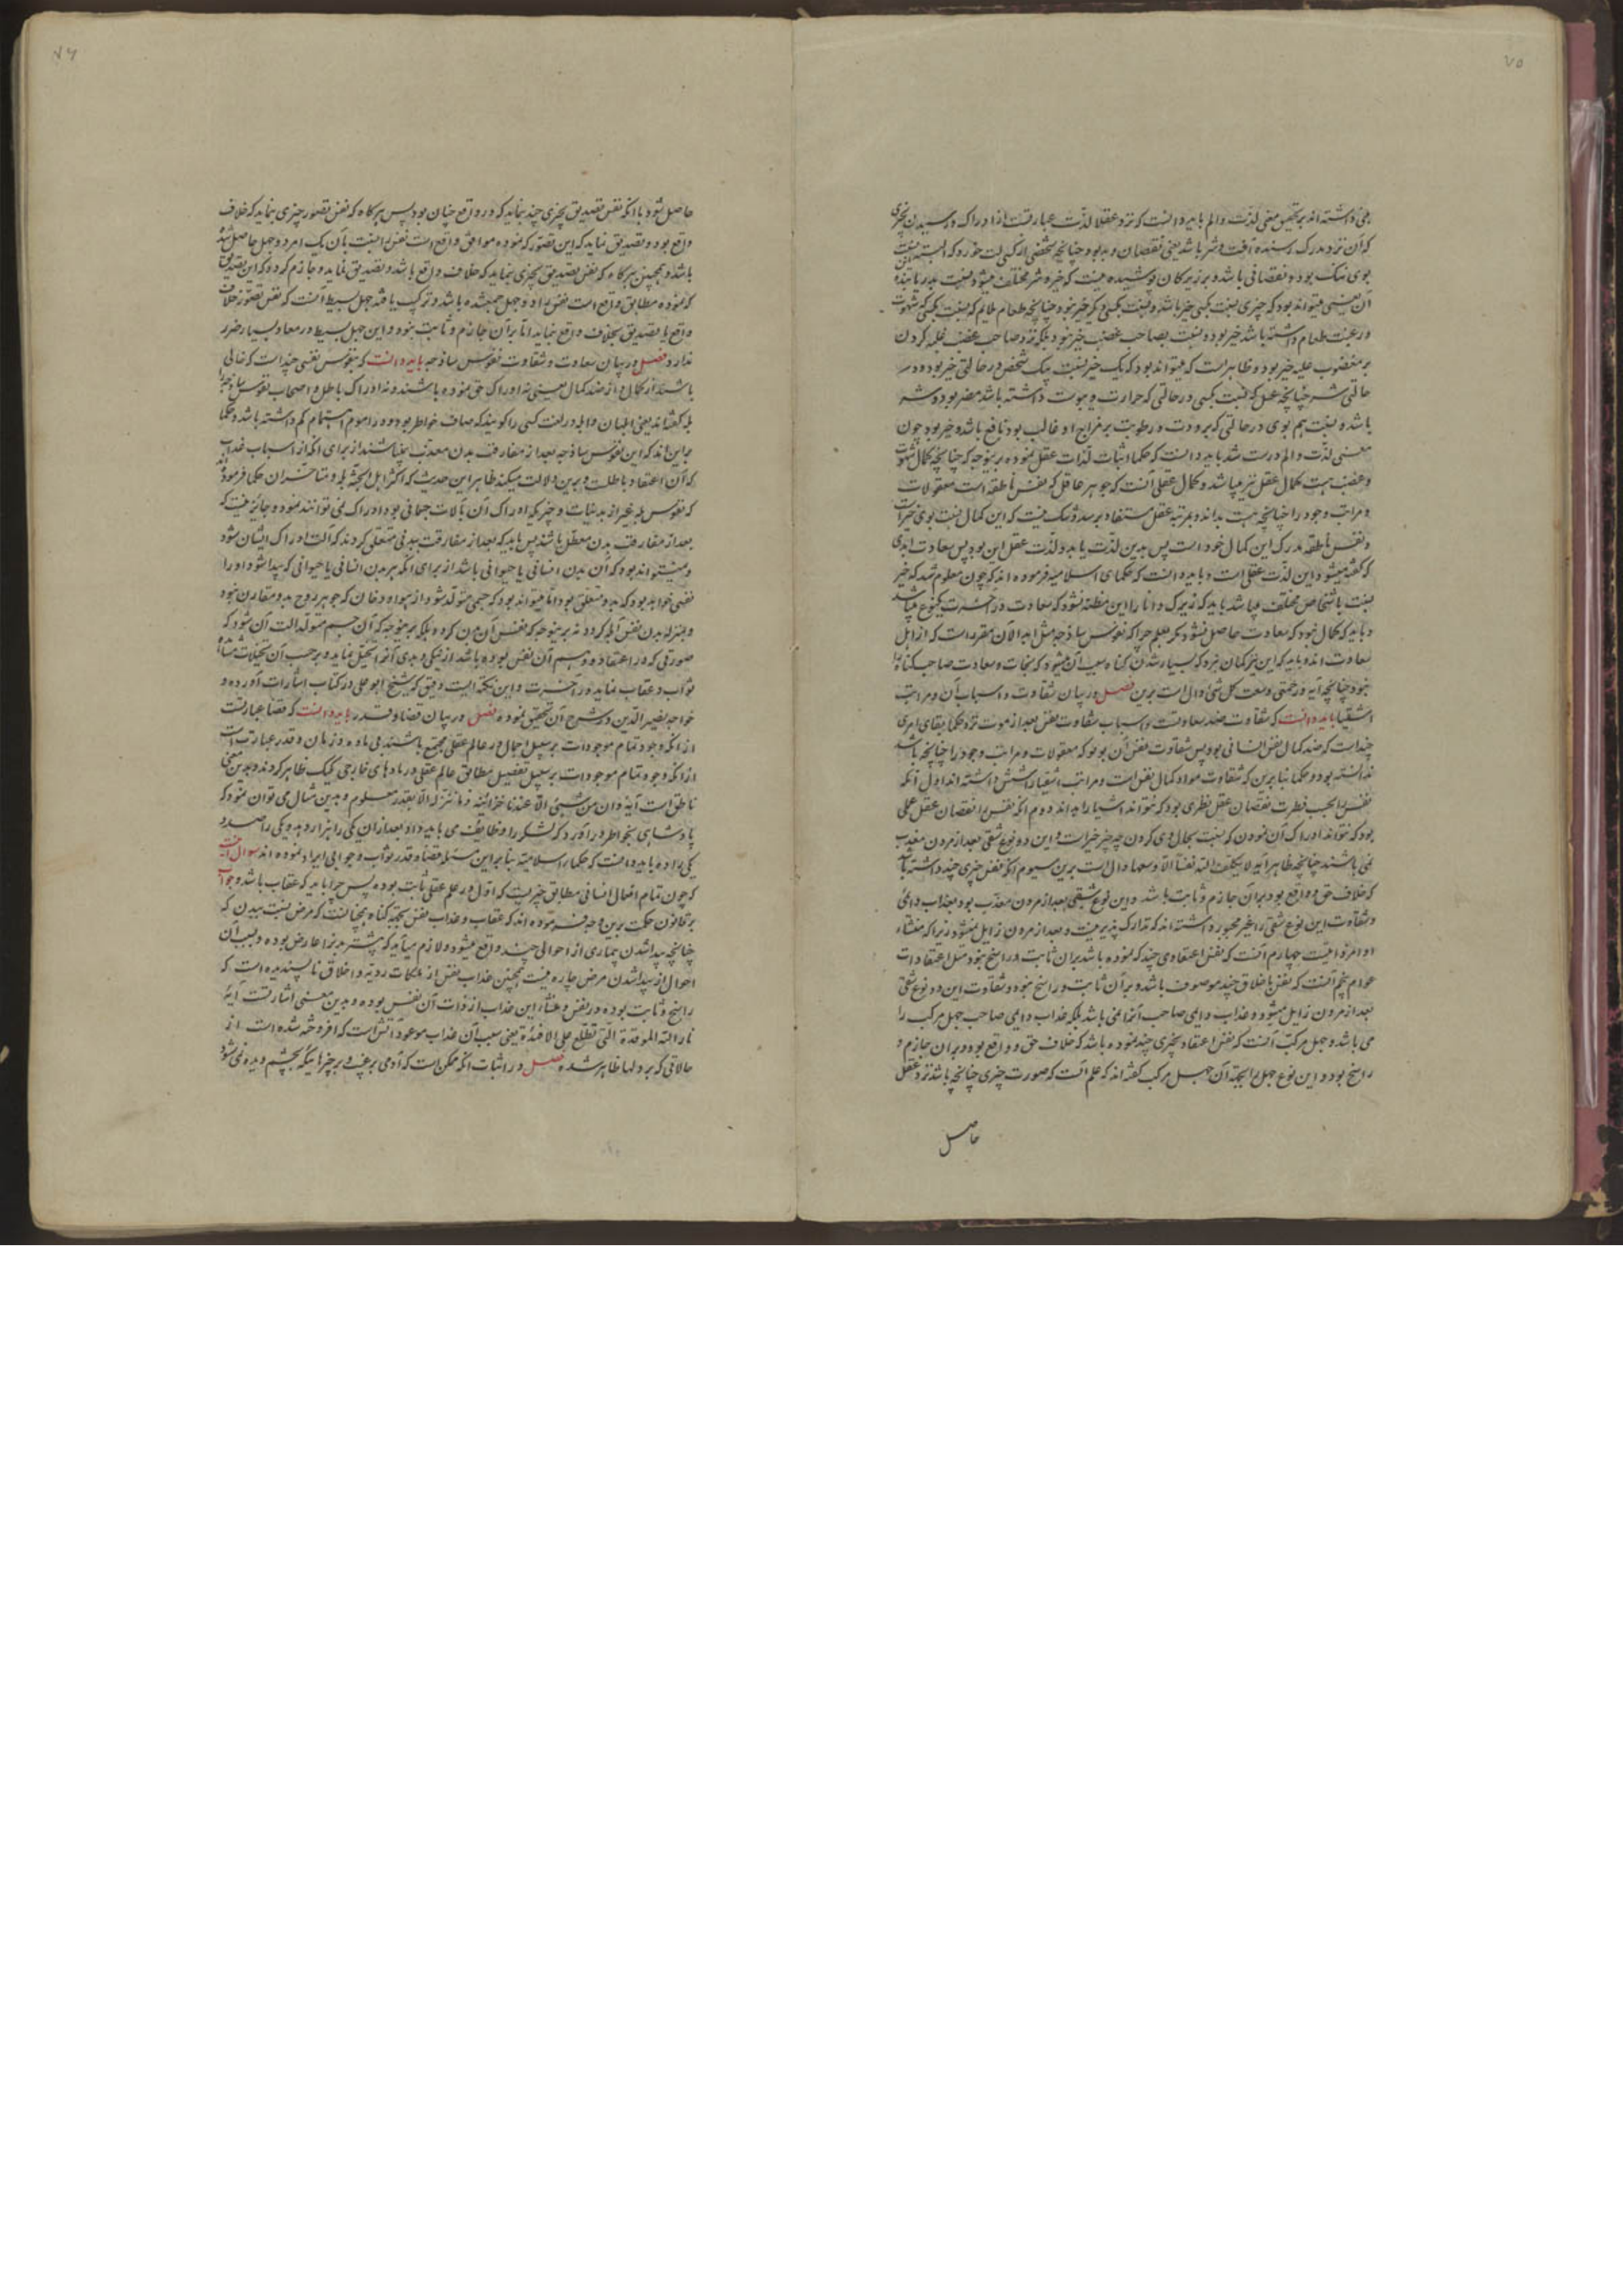 ۷۵
که آن نزد مدرک رسنده آفت و شر باشد یعنی نقصان و بد بود چنانچه شخصی را که
در غبت طعام داشته باشد خیر بود و نسبت بصاحب غضب خیر نبود بلکه نزد صاحب غضب غلبه کردن
بر مغضوب علیه خیر بود و ظاهر است که میتواند بود که یک خیر نسبت بیک شخص در حالتی خیر بود و در
حالتی شر چنانچه عسل که نسبت بکسی در حالتی که حرارت و یبوست داشته باشد مضر بود و شر
باشد و نسبت هم بوی در حالتی که برودت و رطوبت بر مزاج او غالب بود نافع باشد و خیر بود چون
معنی لذت و الم درست شد باید دانست که حکما اثبات لذات عقل نموده بر ینوجه که چنانچه کمال شهوت
و غضب هست کمال عقل نیز میباشد و کمال عقلی آنست که جوهر عاقل که نفس ناطقه است معقولات
و مراتب وجود را چنانچه هست بداند و بمرتبه عقل مستفاد برسد و شک نیست که این کمال نسبت بوی خیر است
و نفس ناطقه مدرک این کمال خود است پس بدین لذت یابد و لذت عقل این بود پس سعادت ابدی
که گفته میشود این لذت عقلی است و باید دانست که حکمای اسلامیه فرموده اند که چون معلوم شد که خیر
نسبت باشخاص مختلف میباشد باید که زیرک دانا را این مظنه نشود که سعادت در آخرت یکنوع میباشد
نبود چنانچه آیه و رحمتی وسعت کل شیء دال است برین فصل در بیان شقاوت و اسباب آن و مراتب
اشقیا باید دانست که شقاوت ضد سعادتست و اسباب شقاوت نفس بعد از موت نزد حکما بقای امری
چند است که ضد کمال نفس انسانی بود پس شقاوت نفس آن بود که معقولات و مراتب وجود را چنانچه باشد
ندانسته بود و حکما بنا برین که شقاوت مواد کمال نفس است و مراتب اشقیا را شش داشته اند اول آنکه
نفس را بحسب فطرت نقصان عقل نظری بود که نتواند اشیا را بداند دوم آنکه نفس را نقصان عقل عملی
بود که نتواند ادراک آن نمودن که نسبت بحال وی کردن چه چیز خیر است و این دو نوع شقی بعد از مردن معذب
نمی باشند چنانچه ظاهر آیه لا یکلف الله نفسا الا وسعها دال است برین سیوم آنکه نفس چیزی چند دانسته باشد
که خلاف حق و واقع بود بران جازم و ثابت باشد و این نوع شقی بعد از مردن معذب بود بعذاب دائمی
عوام پنجم آنست که نفس باخلاق چند موصوف باشد و بر آن ثابت و راسخ نبود و شقاوت این دو نوع شقی
بعد از مردن زایل میشود و عذاب دایمی صاحب آنها نمی باشد بلکه عذاب دایمی صاحب جهل مرکب را
می باشد و جهل مرکب آنست که نفس اعتقاد بچیزی چند نموده باشد که خلاف حق و واقع بود و بران جازم و
راسخ بود و این نوع جهل را بجهة آن جهل مرکب گفته اند که علم آنست که صورت چیزی چنانچه باشد نزد عقل
حاصل
۷۶
حاصل شود یا آنکه نفس تصدیق بچیزی چند نماید که در واقع چنان بود پس هرگاه که نفس تصور چیزی نماید که خلاف
واقع بود و تصدیق نماید که این تصور که نموده موافق واقع است نفس را نسبت بآن یک امر دو جهل حاصل شده
باشد و همچنین هرگاه که نفس تصدیق بچیزی نماید که خلاف واقع باشد و تصدیق نماید و جازم گردد که این تصدیق
که نموده مطابق واقع است نفس را دو جهل جمع شده باشد و ترکیب یافته جهل بسیط آنست که نفس تصور خلاف
واقع یا تصدیق بخلاف واقع نماید اما بر آن جازم و ثابت نبود و این جهل بسیط در معاد بسیار ضرر
ندارد فصل در بیان سعادت و شقاوت نفوس ساذجه باید دانست که نفوس نفسی چند است که خالی
باشند از کمال و از ضد کمال یعنی نه ادراک حق نموده باشند و نه ادراک باطل و اصحاب نفوس ساذجه را
بله گفته اند یعنی ابلهان و ابله در لغت کسی را گویند که صاف خواطر بود و در امور اهتمام کم داشته باشد و حکما
بر این اند که این نفوس ساذجه بعد از مفارقت بدن معذب نمیباشند از برای آنکه از اسباب عذاب
که آن اعتقاد باطلست و برین دلالت میکند ظاهر این حدیث که اکثر اهل الجنة بله و متأخران حکما فرموده اند
بعد از مفارقت بدن معطل باشند پس باید که بعد از مفارقت ببدنی متعلق گردند که آلت ادراک ایشان شود
و نمیتواند بود که آن بدن انسانی یا حیوانی باشد از برای آنکه هر بدن انسانی یا حیوانی که پیدا شود او را
نفسی خواهد بود که بدو متعلق بود اما میتواند بود که جسمی متولد شود از هوا و دخان که جوهر روح بدو مقارن نبود
صورتی که در اعتقاد و وهم آن نفس بوده باشد از نیکی و بدی آنرا تخیل نماید و بر حسب آن تخیلات مشاهده
ثواب و عقاب نماید در آخرت و این نکته ایست دقیق که شیخ ابو علی در کتاب اشارات آورده و
خواجه نصیر الدین در شرح آن تحقیق نموده فصل در بیان قضا و قدر باید دانست که قضا عبارتست
از آنکه وجود تمام موجودات بر سبیل اجمال در عالم عقلی مجتمع باشند بی ماده و زمان و قدر عبارتست
از آنکه وجود تمام موجودات بر سبیل تفصیل مطابق عالم عقلی در مادهای خارجی یک یک ظاهر گردند و بدین معنی
ناطق است آیه و ان من شیئی الا عندنا خزائنه و ما ننزله الا بقدر معلوم و بدین مثال می توان نمود که
پادشاهی بخواطر در آورد که لشکر را وظایف می باید داد بعد از آن یکی را هزار دهد و یکی را صد و
یکی را ده و باید دانست که حکماء اسلامیه بنا بر این مسئله قضا و قدر سؤال و جوابی ایراد نموده اند سوال آنست
که چون تمام افعال انسانی مطابق چیزیست که اول در علم عقلی ثابت بوده پس چرا باید که عقاب باشد و جواب
بر قانون حکمت برین وجه فرموده اند که عقاب و عذاب نفس بجهة گناه همچنانست که مرض نسبت ببدن که
چنانچه پیدا شدن بیماری از احوالی چند واقع میشود و لازم میآید که پیشتر بدنرا عارض بوده و بسبب آن
احوال از پیدا شدن مرض چاره نیست همچنین عذاب نفس از ملکات ردیه و اخلاق ناپسندیده است که
راسخ و ثابت بوده در نفس و منشاء این عذاب از ذات آن نفس بوده و بدین معنی اشارتست آیه
نار الله الموقدة التی تطلع علی الافئدة یعنی سبب آن عذاب موعود آتش است که افروخته شده است از
حالاتی که بر دلها ظاهر شده فصل در اثبات آنکه ممکن است که آدمی بر غیب و بر چیزها ئیکه بچشم دیده نمی شود